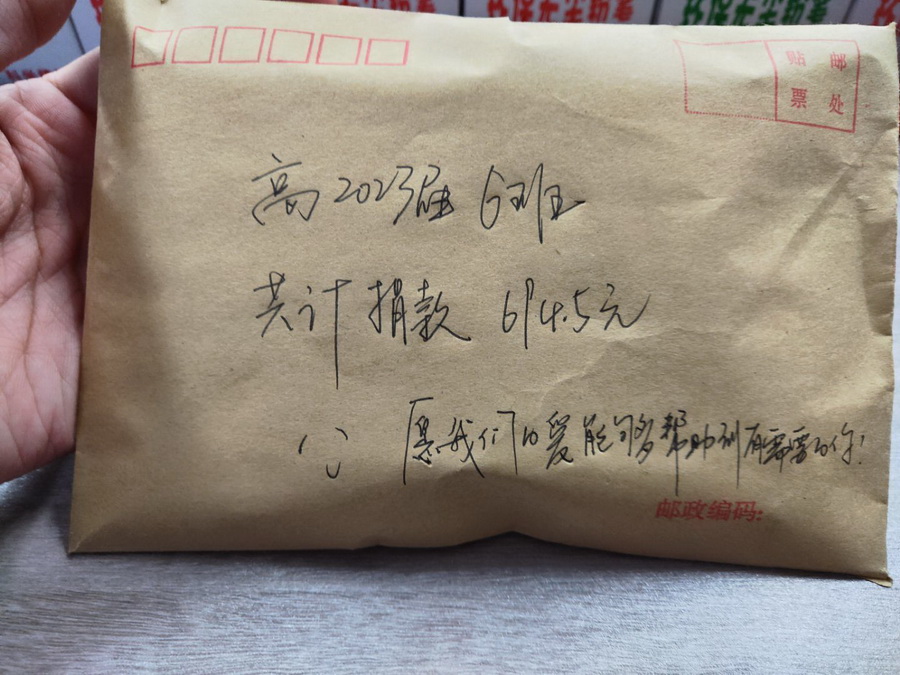 贴 邮
票 处
高2023届 6班
共计捐款 614.5元
愿我们的爱能够帮助到有需要的你!
邮政编码: